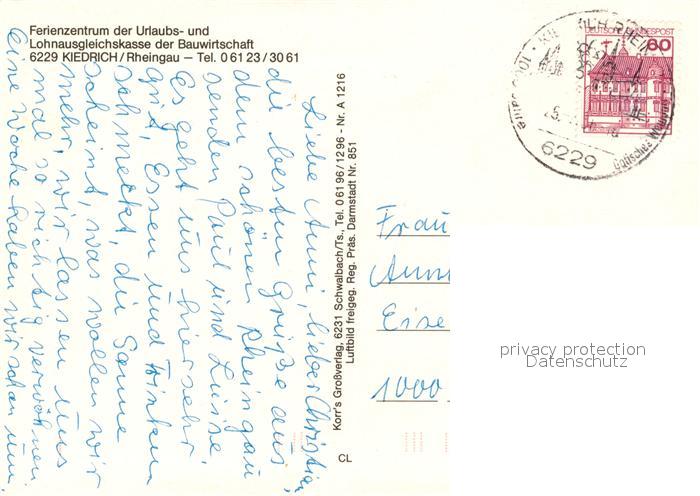 Ferienzentrum der Urlaubs- und
Lohnausgleichskasse der Bauwirtschaft
6229 KIEDRICH/Rheingau – Tel. 0 61 23 / 30 61
Liebe Anni, lieber Christian,
die besten Grüße aus
dem schönen Rheingau
senden Paul und Luise.
Es geht uns hier sehr
gut, Essen und Trinken
schmeckt, die Sonne
scheint, was wollen wir
mehr, wir lassen uns
mal so richtig verwöhnen
eine Woche haben wir schon um.
Korr's Großverlag, 6231 Schwalbach/Ts., Tel. 0 61 96 / 12 96 - Nr. A 1216
Luftbild freigeg. Reg. Präs. Darmstadt Nr. 851
CL
DEUTSCHE BUNDESPOST
60
6229
Gotisches Weindorf
Frau
Anni
Eise
1000
privacy protection
Datenschutz